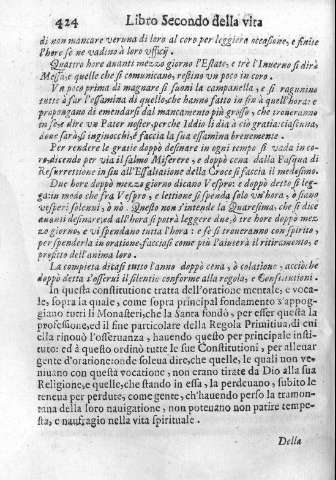 424 Libro Secondo della vita
di non mancare veruna di loro al coro per leggiera occasione, e finite
l'hore se ne vadino à loro vfficij.
Quattro hore auanti mezzo giorno l'Estate, e trè l'Inuerno si dirà
Messa: e quelle che si comunicano, restino vn poco in coro.
Vn poco prima di magnare si suoni la campanella, e si ragunino
tutte à far l'essamina di quello, che hanno fatto in sin à quell'hora: e
propongano di emendarsi dal mancamento più grosso, che troueranno
in se; e dire vn Pater noster perche Iddio le dia à ciò gratia: ciascuna,
doue sarà, si inginocchi, e faccia la sua essamina breuemente.
Per rendere le gratie doppò desinare in ogni tempo si vada in co-
ro, dicendo per via il salmo Miserere, e doppò cena dalla Pasqua di
Resurrettione in sin all'Essaltatione della Croce si faccia il medesimo.
Due hore doppò mezzo giorno dicano Vespro: e doppò detto si leg-
ga: in modo che fra Vespro, e lettione si spenda solo vn'hora, ò siano
vesperi solenni, ò nò. Questo non s'intende la Quaresima, che si dice
auanti desinare: ed all'hora si potrà leggere due, ò tre hore doppò mez-
zo giorno, e vi spendano tutta l'hora: e se si troueranno con spirito,
per spenderla in oratione, facciasi come più l'aiuterà il ritiramento, e
profitto dell'anima loro.
La compieta dicasi tutto l'anno doppò cena, ò colatione, acciò che
doppò detta s'osserui il silentio conforme alla regola, e Constitutioni.
In questa constitutione tratta dell'oratione mentale, e voca-
le, sopra la quale, come sopra principal fondamento s'appog-
giano tutti li Monasteri, che la Santa fondò, per esser questa la
professione, ed il fine particolare della Regola Primitiua, di cui
ella rinouò l'osseruanza, hauendo questo per principale insti-
tuto: ed à questo ordinò tutte le sue Constitutioni, per alleuar
gente d'oratione: onde soleua dire, che quelle, le quali non ve-
niuano con questa vocatione, non erano tirate da Dio alla sua
Religione, e quelle, che stando in essa, la perdeuano, subito le
teneua per perdute, come gente, ch'hauendo perso la tramon-
tana della loro nauigatione, non poteuano non patire tempe-
sta, e naufragio nella vita spirituale.
Della